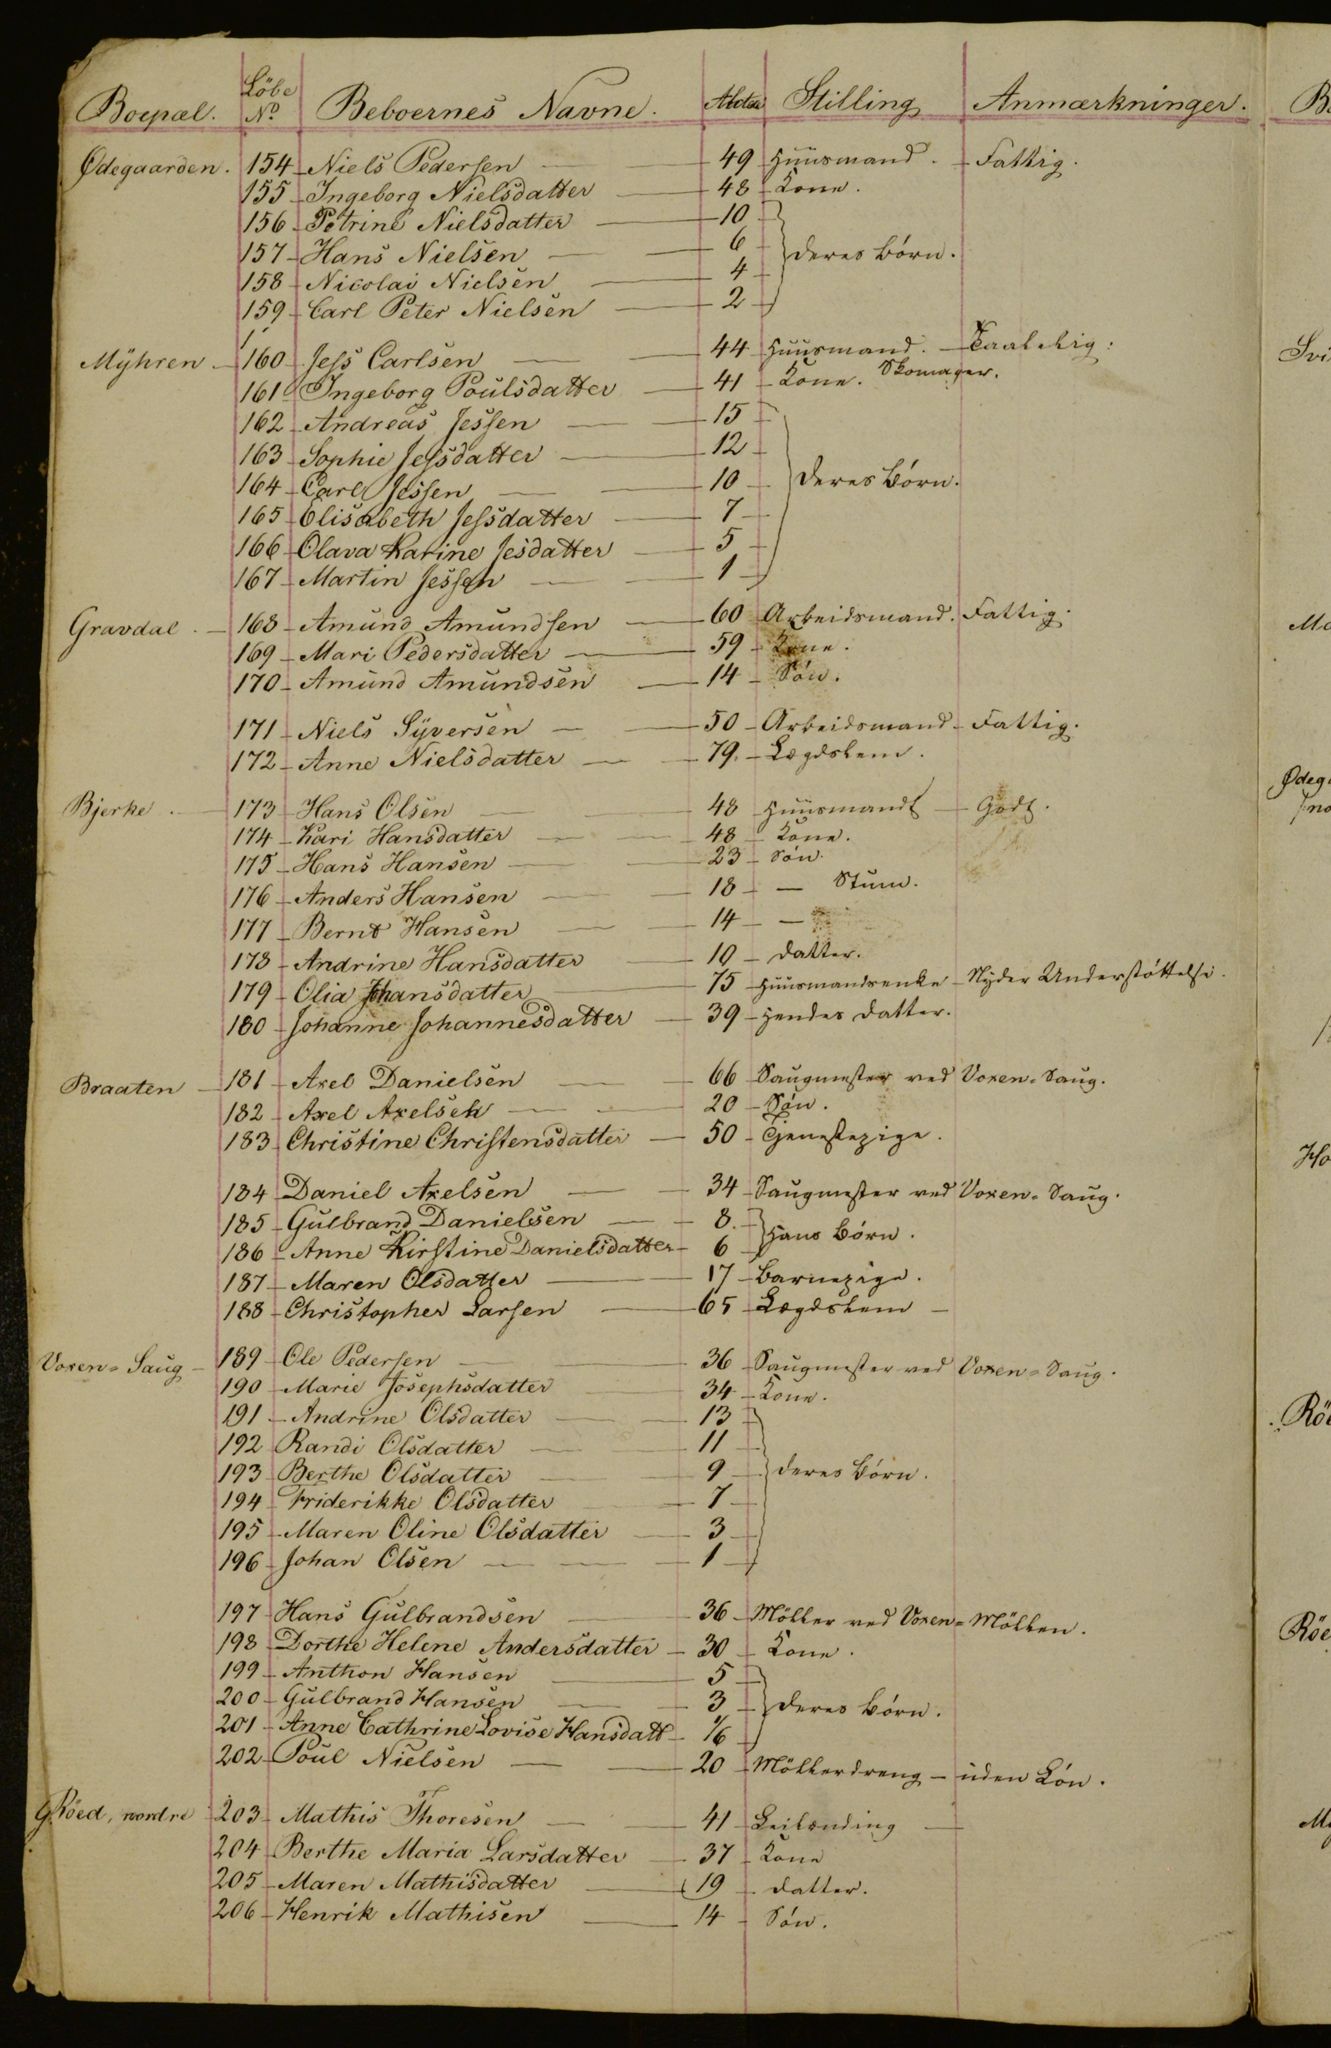 Boepæl. Löbe No Beboernes Navne. Alder Stilling Anmærkninger.
Ødegaarden. 154 Niels Pedersen 49 Huusmand. Fattig.
155 Ingeborg Nielsdatter 48 Kone.
156 Petrine Nielsdatter 10
157 Hans Nielsen 6 deres Børn.
158 Nicolai Nielsen 4
159 Carl Peter Nielsen 2
Mÿhren 160 Jess Carlsen 44 Huusmand. Taalelig.
161 Ingeborg Poulsdatter 41 Kone. Skomager.
162 Andreas Jessen 15
163 Sophie Jessdatter 12
164 Carl Jessen 10 deres Børn.
165 Elisabeth Jessdatter 7
166 Olava Karine Jesdatter 5
167 Martin Jessen 1
Gravdal. 168 Amund Amundsen 60 Arbeidsmand. Fattig.
169 Mari Pedersdatter 59 Kone.
170 Amund Amundsen 14 Søn.
171 Niels Sÿversen 50 Arbeidsmand Fattig.
172 Anne Nielsdatter 79. Lægdslem.
Bjerke. 173 Hans Olsen 48 Huusmand Godt.
174 Kari Hansdatter 48 Kone.
175 Hans Hansen 23 Søn.
176 Anders Hansen 18 — Stum.
177 Bernt Hansen 14 —
178 Andrine Hansdatter 10 datter.
179 Olia Johansdatter 75 Huusmandsenke Nÿder Understøttelse.
180 Johanne Johannesdatter 39 Hendes datter.
Braaten 181 Axel Danielsen 66 Saugmester ved Voxen=Saug.
182 Axel Axelsen 20 Søn.
183 Christine Christensdatter 50 Tjenestepige.
184 Daniel Axelsen 34 Saugmester ved Voxen=Saug.
185 Gulbrand Danielsen 8. Hans Børn.
186 Anne Kirstine Danielsdatter 6
187 Maren Olsdatter 17 Barnepige.
188 Christopher Larsen 65 Lægdslem
Voxen=Saug 189 Ole Pedersen 36 Saugmester ved Voxen=Saug.
190 Marie Josephsdatter 34 Kone.
191 Andrine Olsdatter 13
192 Randi Olsdatter 11
193 Berthe Olsdatter 9 deres Børn.
194 Friderikke Olsdatter 7
195 Maren Oline Olsdatter 3
196 Johan Olsen 1
197 Hans Gulbrandsen 36 Møller ved Voxen=Møllen.
198 Dorthe Helene Andersdatter 30 Kone.
199 Anthon Hansen 5
200 Gulbrand Hansen 3 deres Børn.
201 Anne Cathrine Lovise Hansdatt 1/6
202 Poul Nielsen 20 Møllerdreng uden Løn.
G. Röed, nordre 203 Mathis Thoresen 41 Leilænding
204 Berthe Maria Larsdatter 37 Kone
205 Maren Mathisdatter 19 datter.
206 Henrik Mathisen 14 Søn.